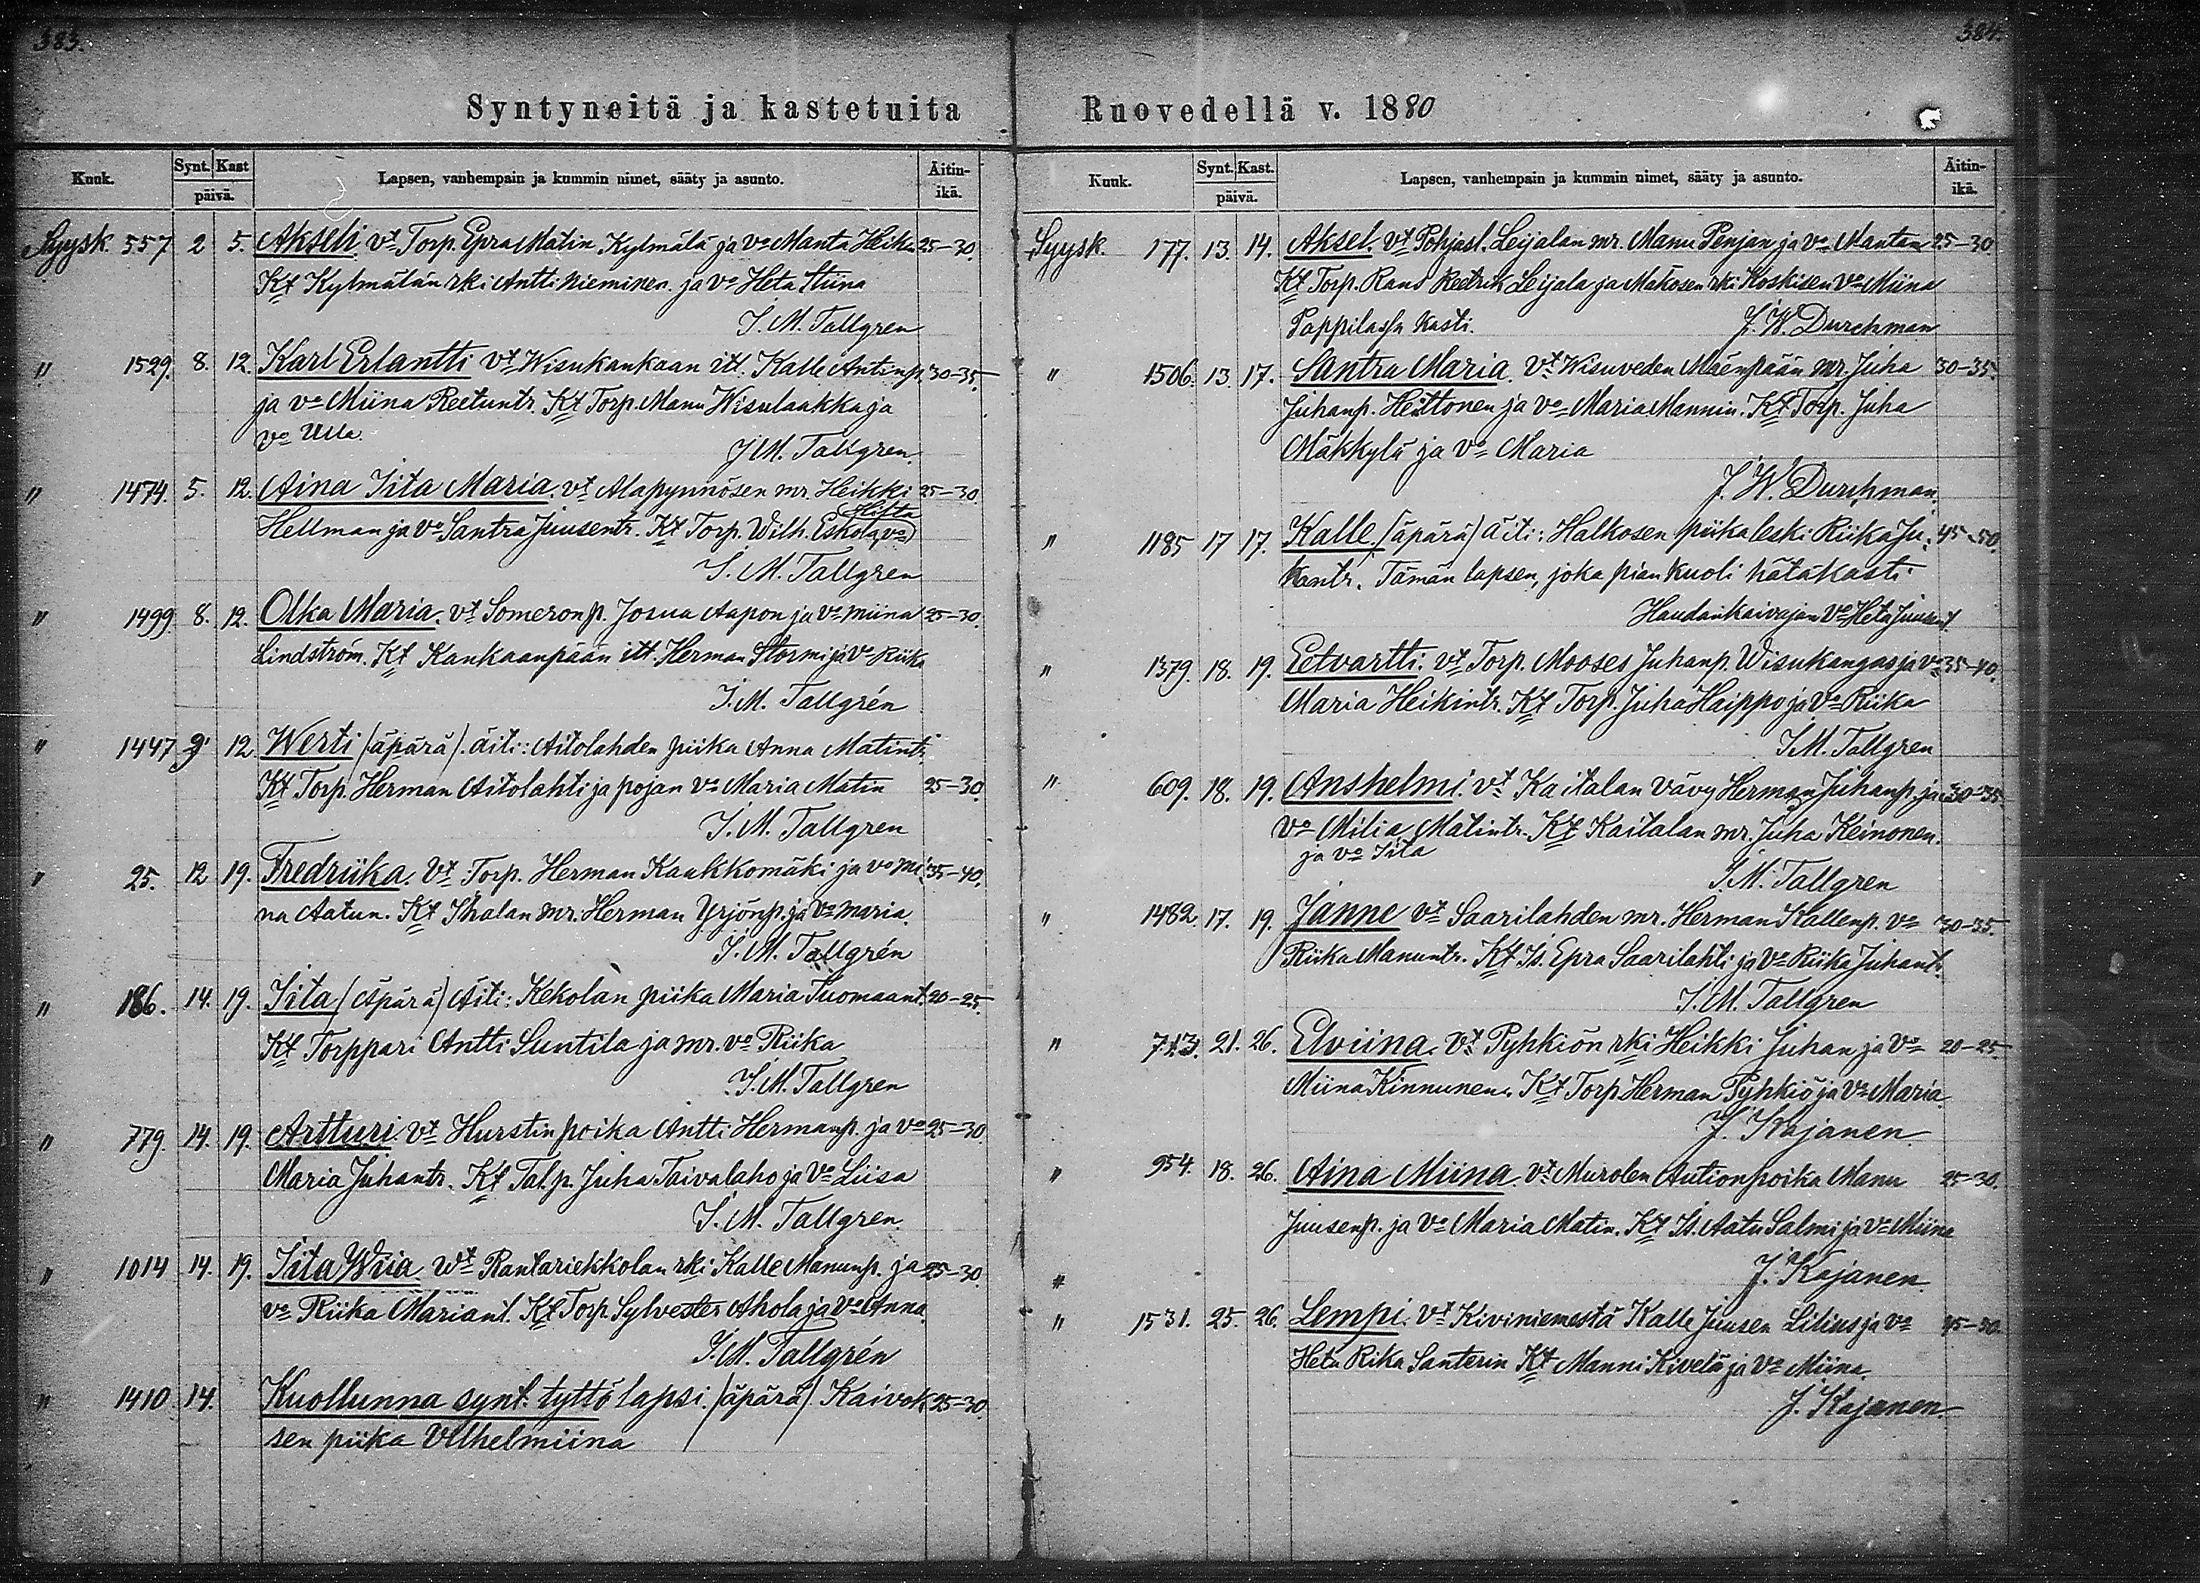 383.
Syntyneitä ja kastetuita
Kuuk. Synt. Kast päivä. Lapsen, vanhempain ja kummin nimet, sääty ja asunto. Äitin-ikä.
Syysk. 557 2 5. Akseli. vt Torp. Epra Matin. Kylmälä ja vo Manta Heika 25-30.
Kt Kylmälän rki Antti Nieminen ja vo Heta Stiina
I. M. Tallgren
" 1529. 8. 12. Karl Erlantti vt Wisukankaan itl. Kalle Antinp. 30-35.
ja vo Miina Reetuntr. Kt Torp. Manu Wisulaakka ja
vo Ulla.
I M. Tallgren.
" 1474. 5. 12. Aina Iita Maria. vt Alapynnösen mr. Heikki 25-30.
Hilta
Hellman ja vo Santra Juusentr. Kt Torp. Wilh. Eskola, vo
I. M. Tallgren
" 1499. 8. 12. Olka Maria. vt Someronp. Josua Aapon ja vo Miina 25-30.
Lindström. Kt Kankaanpään itl. Herman Stormi ja vo Riika
I. M. Tallgrén
" 1447 9 12. Werti (äpärä). äiti: Aitolahden piika Anna Matintr.
Kt Torp. Herman Aitolahti ja pojan vo Maria Matin 25-30.
I. M. Tallgren
" 25. 12 19. Fredriika. vt Torp. Herman Kaukkomäki ja vo Mi- 35-40.
na Aatun. Kt Ihalan mr. Herman Yrjönp. ja vo Maria.
I. M. Tallgrén
" 186. 14. 19. Iita (äpärä) Äiti: Kekolan piika Maria Tuomaant. 20-25.
Kt Torppari Antti Suntila ja mr. vo Riika
I. M. Tallgren
" 779. 14. 19. Artturi. vt Hurstin poika Antti Hermanp. ja vo 25-30
Maria Juhantr. Kt Talp. Juha Taivalaho ja vo Liisa
I. M. Tallgren
" 1014 14. 19. Iita Wiia. vt Rantariekkolan rki Kalle Manunp. ja 25-30.
vo Riika Mariant. Kt Torp. Sylvester Ahola ja vo Anna.
I. M. Tallgrén
" 1410. 14. Kuollunna synt. tyttö lapsi. (äpärä). Kaivok- 25-30.
sen piika Vilhelmiina
384.
Ruovedellä v. 1880
Kuuk. Synt. Kast. päivä. Lapsen, vanhempain ja kummin nimet, sääty ja asunto. Äitin-ikä.
Syysk. 177. 13. 14. Aksel. vt Pohjasl. Leijalan mr. Manu Penjan ja vo Mantan 25-30.
Kt Torp. Rans Reetrik Leijala ja Mäkösen rki Koskisen vo Miina
Pappilassa kasti. J. W. Durchman
" 1506. 13. 17. Santra Maria. vt Wisuveden Mäenpään mr. Juha 30-35.
Juhanp. Heittonen ja vo Maria Mannin. Kt Torp. Juha
Mäkkylä ja vo Maria
J. W. Durchman.
" 1185 17 17. Kalle (äpärä) Äiti: Halkosen piika leski Riika Ju- 45-50.
hantr. Tämän lapsen, joka pian kuoli hätäkasti
Haudankaivajan vo Heta Juusent.
" 1379. 18. 19. Eetvartti. vt Torp. Mooses Juhanp. Wisukangas ja vo 35-40.
Maria Heikintr. Kt Torp. Juha Haippo ja vo Riika
I M. Tallgren
" 609. 18. 19. Anshelmi. vt Kaitalan vävy Herman Juhanp. ja 30-35
vo Milia Matintr. Kt Kaitalan mr. Juha Keinonen.
ja vo Iita
I. M. Tallgren
" 1482. 17. 19. Janne vt Saarilahden mr. Herman Kallenp. vo 30-35.
Riika Manuntr. Kt Is. Epra Saarilahti ja vo Riika Juhantr.
I. M. Tallgren
" 713. 21. 26. Elviina. vt Pyhkiön rki Heikki Juhan ja vo 20-25.
Miina Kinnunen. Kt Torp. Herman Pyhkiö ja vo Maria.
J. Kajanen
" 954. 18. 26. Aina Miina. vt Murolen Aution poika Manu 25-30.
Juusenp. ja vo Maria Matin. Kt Is. Aatu Salmi ja vo Miina
" J. Kajanen
" 1531. 25. 26. Lempi. vt Kiviniemestä Kalle Juusen Lilius ja vo
Heta Rika Santerin Kt Manni Kivelä ja vo Miina.
J. Kajanen.